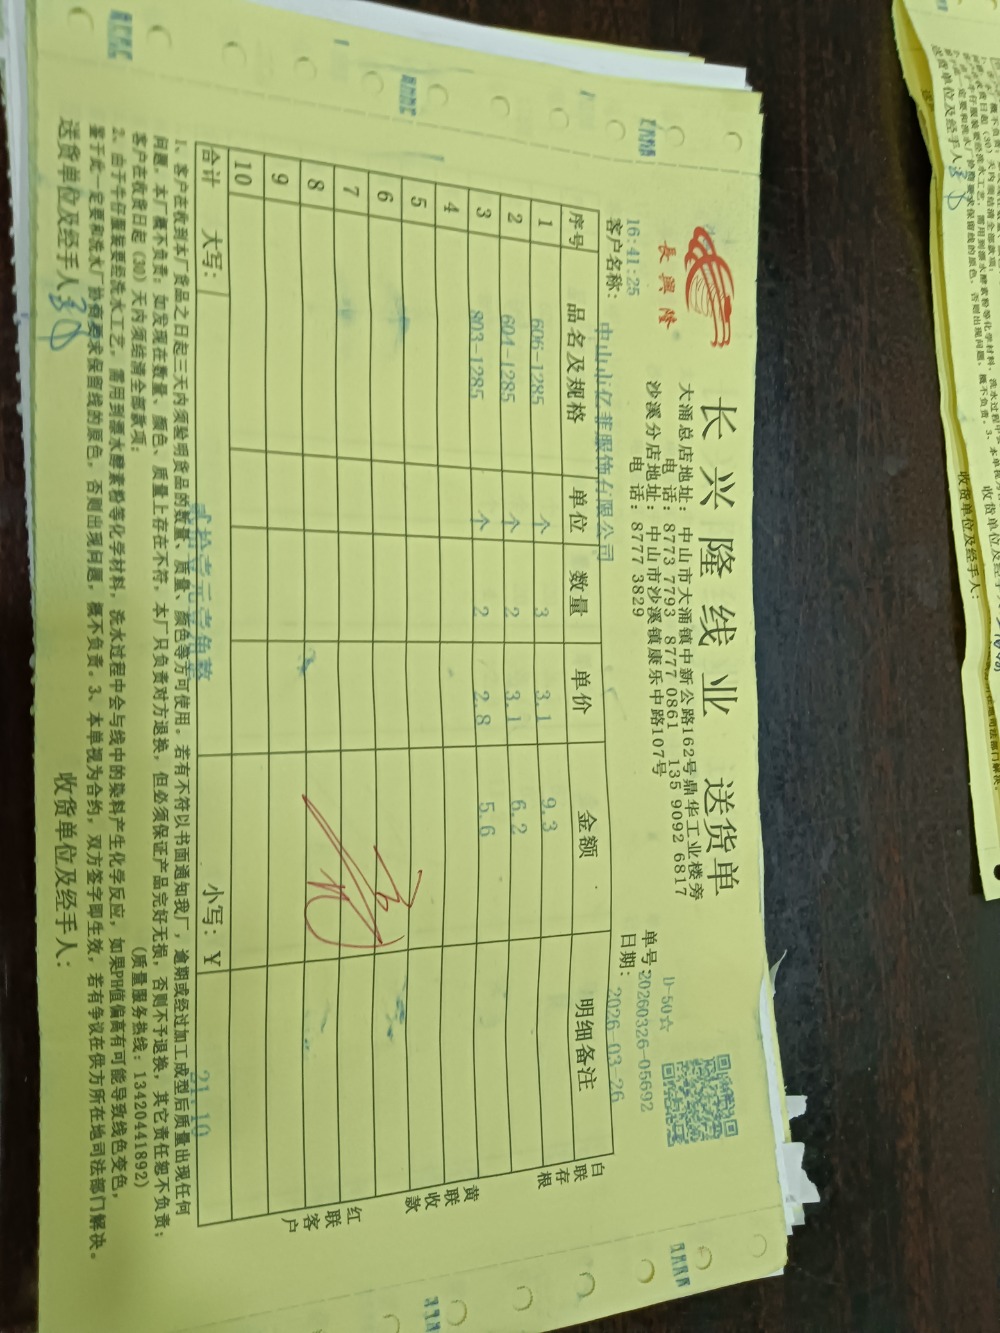 長興隆
长兴隆线业 送货单
大涌总店地址：中山市大涌镇中新公路162号鼎华工业楼旁
电话：8773 7793 8777 0861 135 9092 6817
沙溪分店地址：中山市沙溪镇康乐中路107号
电话：8777 3829
D-50☆
16:41:25
单号:20260326-05692
客户名称：中山市亿菲服饰有限公司
日期：2026-03-26
序号 品名及规格 单位 数量 单价 金额 明细备注
1 606-1285 个 3 3.1 9.3
2 604-1285 个 2 3.1 6.2
3 803-1285 个 2 2.8 5.6
4
5
6
7
8
9
10
合计 大写：贰拾壹元壹角整 小写：¥ 21.10
白联存根
黄联收款
红联客户
1、客户在收到本厂货品之日起三天内须验明货品的数量、质量、颜色等方可使用。若有不符以书面通知我厂，逾期或经过加工成型后质量出现任何
问题，本厂概不负责；如发现在数量、颜色、质量上存在不符，本厂只负责对方退换，但必须保证产品完好无损，否则不予退换，其它责任恕不负责；
客户在收货日起（30）天内须结清全部款项； （质量服务热线：13420441892）
2、由于牛仔服装要经洗水工艺，需用到漂水酵素粉等化学材料，洗水过程中会与线中的染料产生化学反应，如果PH值偏高有可能导致线色变色，
鉴于此一定要和洗水厂协商要求保留线的原色，否则出现问题，概不负责。3、本单视为合约，双方签字即生效，若有争议在供方所在地司法部门解决。
送货单位及经手人： 收货单位及经手人：
送货单位及经手人
收货单位及经手人：